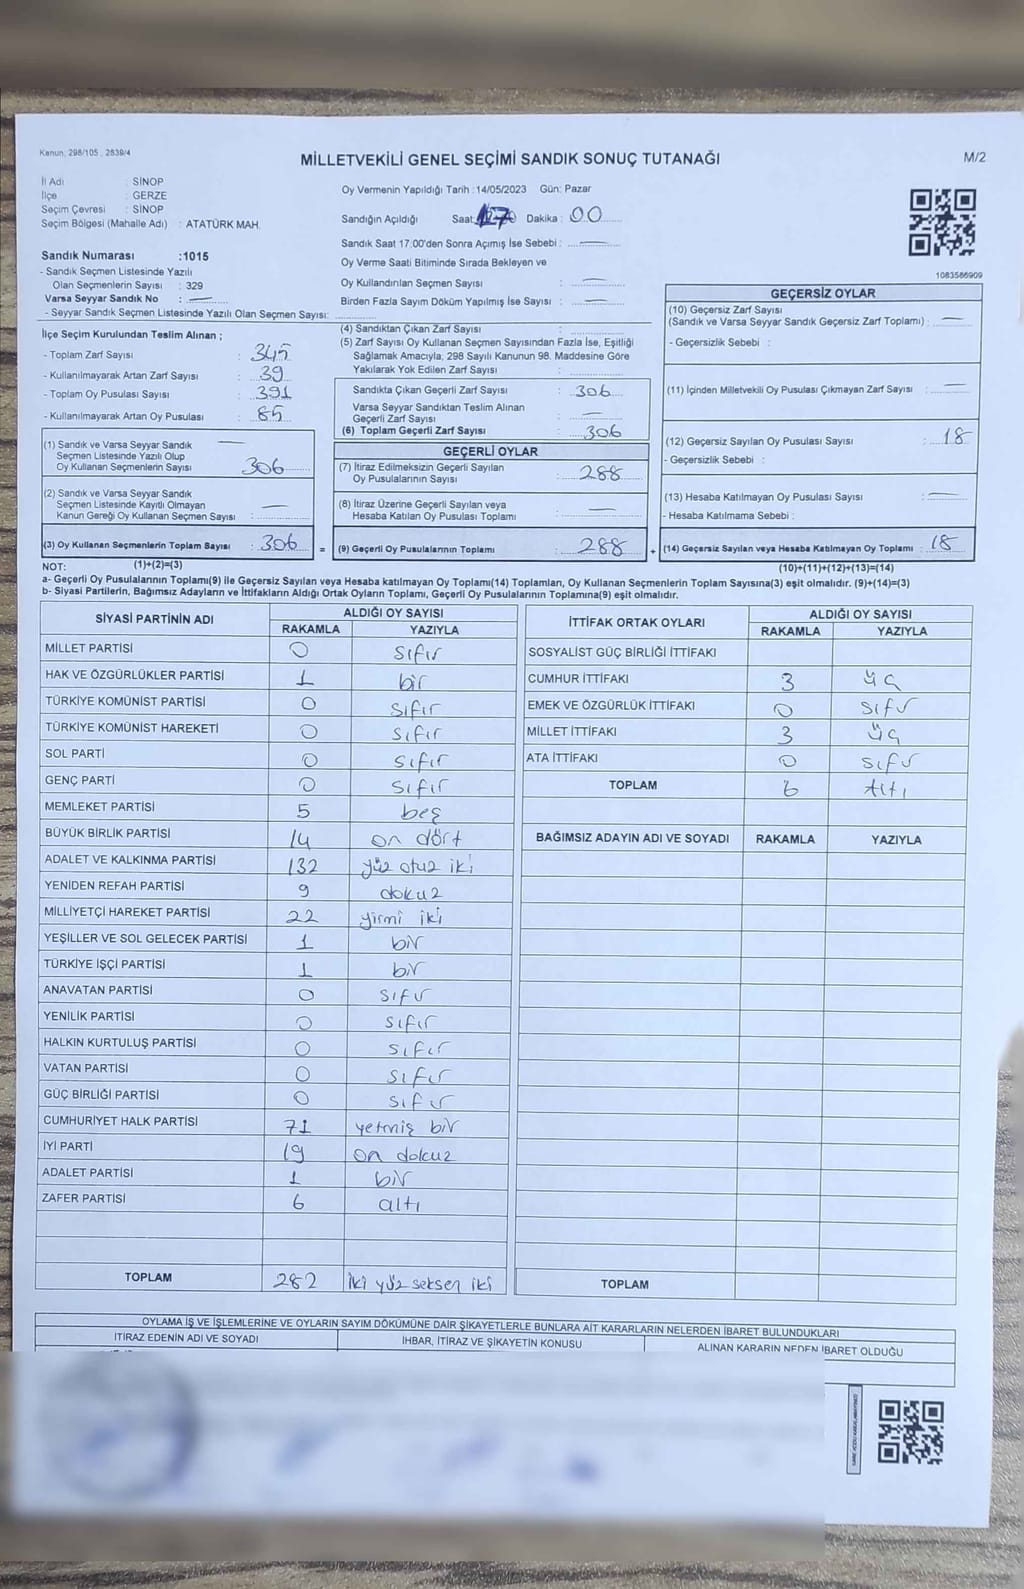 Kanun, 298/105 , 2839/4
MİLLETVEKİLİ GENEL SEÇİMİ SANDIK SONUÇ TUTANAĞI
M/2
İl Adı : SİNOP
İlçe : GERZE
Seçim Çevresi : SİNOP
Seçim Bölgesi (Mahalle Adı) : ATATÜRK MAH.
Oy Vermenin Yapıldığı Tarih : 14/05/2023 Gün: Pazar
Sandığın Açıldığı Saat: Dakika : 00
Sandık Saat 17.00'den Sonra Açımış İse Sebebi : —
Oy Verme Saati Bitiminde Sırada Bekleyen ve
Oy Kullandırılan Seçmen Sayısı : —
Birden Fazla Sayım Döküm Yapılmış İse Sayısı : —
1083586909
Sandık Numarası :1015
- Sandık Seçmen Listesinde Yazılı
Olan Seçmenlerin Sayısı : 329
Varsa Seyyar Sandık No : —
- Seyyar Sandık Seçmen Listesinde Yazılı Olan Seçmen Sayısı:
İlçe Seçim Kurulundan Teslim Alınan ;
- Toplam Zarf Sayısı : 345
- Kullanılmayarak Artan Zarf Sayısı : 39
- Toplam Oy Pusulası Sayısı : 391
- Kullanılmayarak Artan Oy Pusulası : 85
(1) Sandık ve Varsa Seyyar Sandık —
Seçmen Listesinde Yazılı Olup
Oy Kullanan Seçmenlerin Sayısı : 306
(2) Sandık ve Varsa Seyyar Sandık
Seçmen Listesinde Kayıtlı Olmayan —
Kanun Gereği Oy Kullanan Seçmen Sayısı :
(3) Oy Kullanan Seçmenlerin Toplam Sayısı : 306 =
(1)+(2)=(3)
(4) Sandıktan Çıkan Zarf Sayısı :
(5) Zarf Sayısı Oy Kullanan Seçmen Sayısından Fazla İse, Eşitliği
Sağlamak Amacıyla, 298 Sayılı Kanunun 98. Maddesine Göre
Yakılarak Yok Edilen Zarf Sayısı :
Sandıkta Çıkan Geçerli Zarf Sayısı : 306
Varsa Seyyar Sandıktan Teslim Alınan
Geçerli Zarf Sayısı : —
(6) Toplam Geçerli Zarf Sayısı : 306
GEÇERLİ OYLAR
(7) İtiraz Edilmeksizin Geçerli Sayılan
Oy Pusulalarının Sayısı : 288
(8) İtiraz Üzerine Geçerli Sayılan veya
Hesaba Katılan Oy Pusulası Toplamı : —
(9) Geçerli Oy Pusulalarının Toplamı : 288 +
GEÇERSİZ OYLAR
(10) Geçersiz Zarf Sayısı
(Sandık ve Varsa Seyyar Sandık Geçersiz Zarf Toplamı) : —
- Geçersizlik Sebebi :
(11) İçinden Milletvekili Oy Pusulası Çıkmayan Zarf Sayısı : —
(12) Geçersiz Sayılan Oy Pusulası Sayısı : 18
- Geçersizlik Sebebi :
(13) Hesaba Katılmayan Oy Pusulası Sayısı : —
- Hesaba Katılmama Sebebi :
(14) Geçersiz Sayılan veya Hesaba Katılmayan Oy Toplamı : 18
(10)+(11)+(12)+(13)=(14)
NOT:
a- Geçerli Oy Pusulalarının Toplamı(9) ile Geçersiz Sayılan veya Hesaba katılmayan Oy Toplamı(14) Toplamları, Oy Kullanan Seçmenlerin Toplam Sayısına(3) eşit olmalıdır. (9)+(14)=(3)
b- Siyasi Partilerin, Bağımsız Adayların ve İttifakların Aldığı Ortak Oyların Toplamı, Geçerli Oy Pusulalarının Toplamına(9) eşit olmalıdır.
SİYASİ PARTİNİN ADI ALDIĞI OY SAYISI
RAKAMLA YAZIYLA
MİLLET PARTİSİ 0 sıfır
HAK VE ÖZGÜRLÜKLER PARTİSİ 1 bir
TÜRKİYE KOMÜNİST PARTİSİ 0 sıfır
TÜRKİYE KOMÜNİST HAREKETİ 0 sıfır
SOL PARTİ 0 sıfır
GENÇ PARTİ 0 sıfır
MEMLEKET PARTİSİ 5 beş
BÜYÜK BİRLİK PARTİSİ 14 on dört
ADALET VE KALKINMA PARTİSİ 132 yüz otuz iki
YENİDEN REFAH PARTİSİ 9 dokuz
MİLLİYETÇİ HAREKET PARTİSİ 22 yirmi iki
YEŞİLLER VE SOL GELECEK PARTİSİ 1 bir
TÜRKİYE İŞÇİ PARTİSİ 1 bir
ANAVATAN PARTİSİ 0 sıfır
YENİLİK PARTİSİ 0 sıfır
HALKIN KURTULUŞ PARTİSİ 0 sıfır
VATAN PARTİSİ 0 sıfır
GÜÇ BİRLİĞİ PARTİSİ 0 sıfır
CUMHURİYET HALK PARTİSİ 71 yetmiş bir
İYİ PARTİ 19 on dokuz
ADALET PARTİSİ 1 bir
ZAFER PARTİSİ 6 altı
TOPLAM 282 iki yüz seksen iki
İTTİFAK ORTAK OYLARI ALDIĞI OY SAYISI
RAKAMLA YAZIYLA
SOSYALİST GÜÇ BİRLİĞİ İTTİFAKI
CUMHUR İTTİFAKI 3 üç
EMEK VE ÖZGÜRLÜK İTTİFAKI 0 sıfır
MİLLET İTTİFAKI 3 üç
ATA İTTİFAKI 0 sıfır
TOPLAM 6 Altı
BAĞIMSIZ ADAYIN ADI VE SOYADI RAKAMLA YAZIYLA
TOPLAM
OYLAMA İŞ VE İŞLEMLERİNE VE OYLARIN SAYIM DÖKÜMÜNE DAİR ŞİKAYETLERLE BUNLARA AİT KARARLARIN NELERDEN İBARET BULUNDUKLARI
İTİRAZ EDENİN ADI VE SOYADI İHBAR, İTİRAZ VE ŞİKAYETİN KONUSU ALINAN KARARIN NEDEN İBARET OLDUĞU